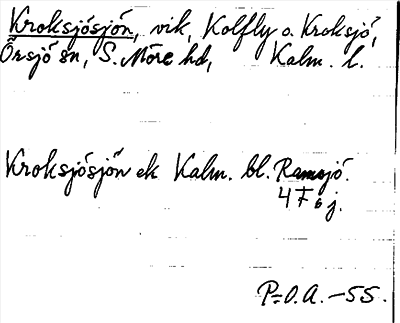 Kroksjösjön, vik, Kolfly o. Kroksjö,
Örsjö sn, S. Möre hd, Kalm. l.
Kroksjösjön ek Kalm. bl. Ramsjö.
4 F 6 j.
P=O.A. -55.